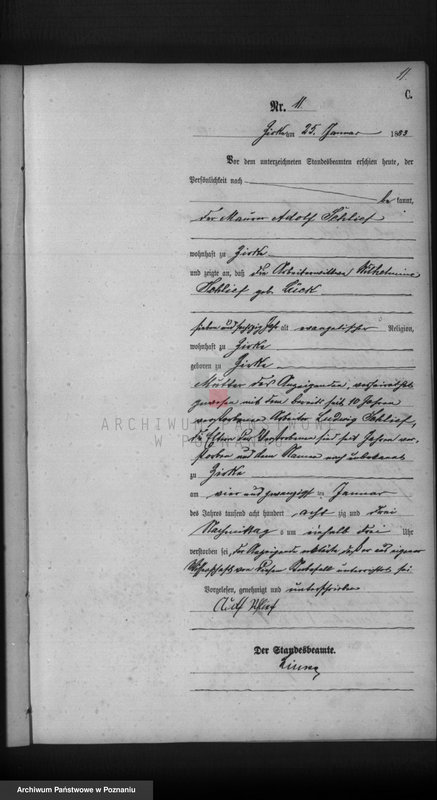 11.
C.
Nr. 11
Zirke am 25. Januar 1883
Vor dem unterzeichneten Standesbeamten erschien heute, der
Persönlichkeit nach
be kannt,
der Maurer Adolf Schlief
wohnhaft zu Zirke
und zeigte an, daß die Arbeiterwittwe Wilhelmine
Schlief geb. Lück
sieben und sechszig Jahr alt evangelischer Religion,
wohnhaft zu Zirke
geboren zu Zirke
Mutter des Anzeigenden, verheirathet
gewesen mit dem bereits seit 10 Jahren
verstorbenen Arbeiter Ludwig Schlief,
die Eltern der Verstorbenen sind seit Jahren ver
storben und dem Namen nach unbekannt
zu Zirke
am vier und zwanzigsten Januar
des Jahres tausend acht hundert acht zig und drei
Nachmittag s um einhalb drei Uhr
verstorben sei, der Anzeigende erklärte, daß er aus eigener
Wissenschaft von diesem Sterbefall unterrichtet sei
Vorgelesen, genehmigt und unterschrieben
Adolf Schlief
Der Standesbeamte.
ARCHIWUM PAŃSTWOWE
W POZNANIU
Archiwum Państwowe w Poznaniu